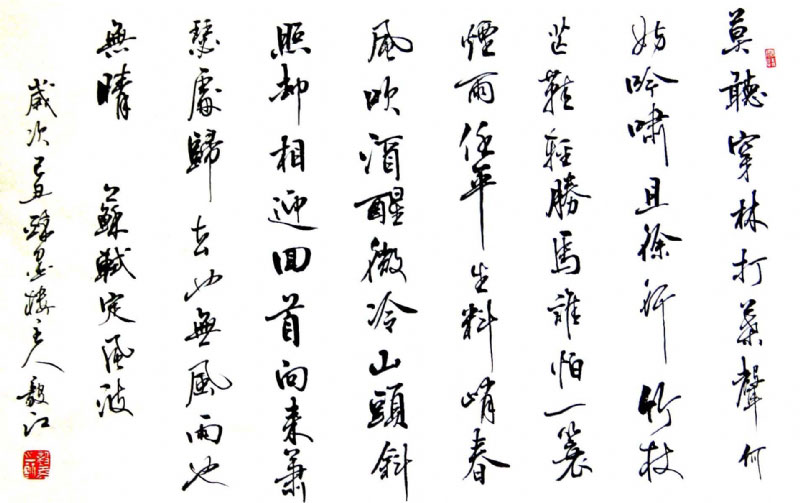 莫聽穿林打葉聲何
妨吟嘯且徐行竹杖
芒鞋輕勝馬誰怕一蓑
煙雨任平生料峭春
風吹酒醒微冷山頭斜
照却相迎回首向來蕭
瑟處歸去也無風雨也
無晴 蘇軾定風波
歲次己丑醉墨樓主人毅江